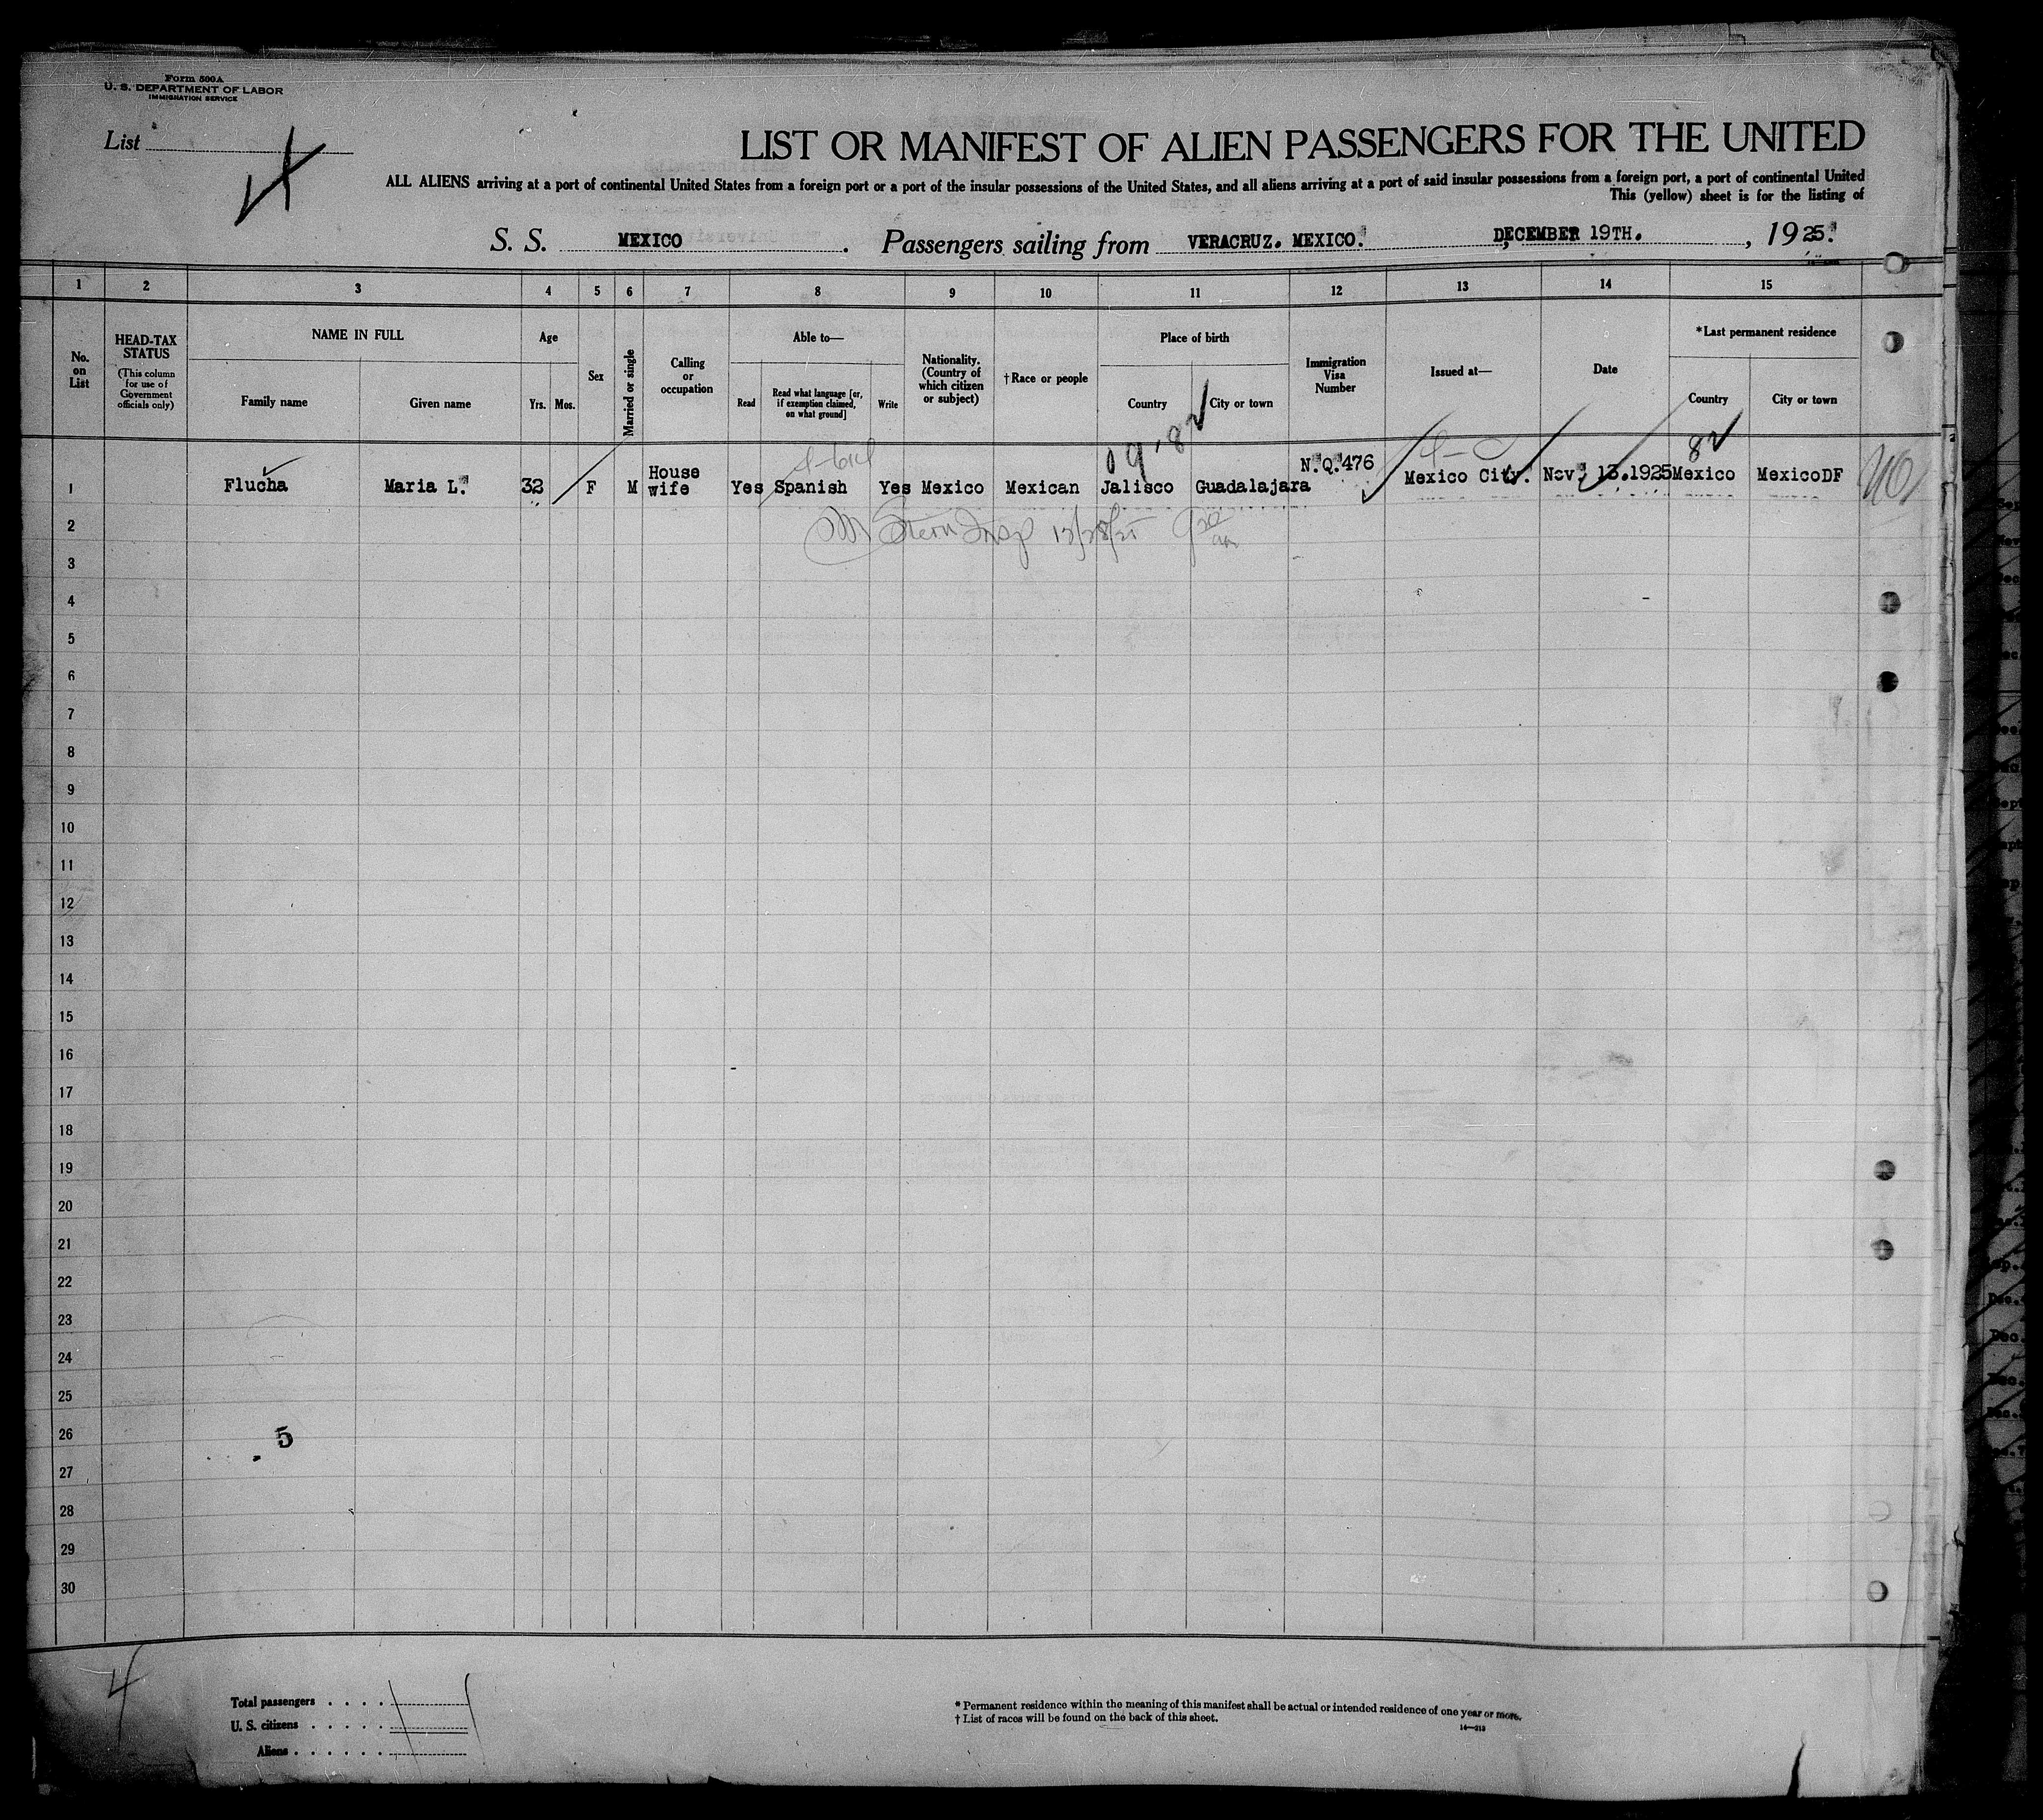 Form 500A
U. S. DEPARTMENT OF LABOR
IMMIGRATION SERVICE
List
LIST OR MANIFEST OF ALIEN PASSENGERS FOR THE UNITED
ALL ALIENS arriving at a port of continental United States from a foreign port or a port of the insular possessions of the United States, and all aliens arriving at a port of said insular possessions from a foreign port, a port of continental United
This (yellow) sheet is for the listing of
S. S. MEXICO. Passengers sailing from VERACRUZ. MEXICO. DECEMBER 19TH., 1925.
1 2 3 4 5 6 7 8 9 10 11 12 13 14 15
No. on List
HEAD-TAX STATUS
(This column for use of Government officials only)
NAME IN FULL
Family name Given name
Age
Yrs. Mos.
Sex
Married or single
Calling or occupation
Able to—
Read
Read what language [or, if exemption claimed, on what ground]
Write
Nationality. (Country of which citizen or subject)
†Race or people
Place of birth
Country City or town
Immigration Visa Number
Issued at—
Date
*Last permanent residence
Country City or town
1 Flucha Maria L. 32 F M House wife Yes Spanish Yes Mexico Mexican Jalisco Guadalajara N.Q.476 Mexico City. Nov. 13.1925 Mexico MexicoDF
2
3
4
5
6
7
8
9
10
11
12
13
14
15
16
17
18
19
20
21
22
23
24
25
26
5
27
28
29
30
Total passengers . . . .
U. S. citizens . . . . .
Aliens . . . . . .
* Permanent residence within the meaning of this manifest shall be actual or intended residence of one year or more.
† List of races will be found on the back of this sheet.
14—213